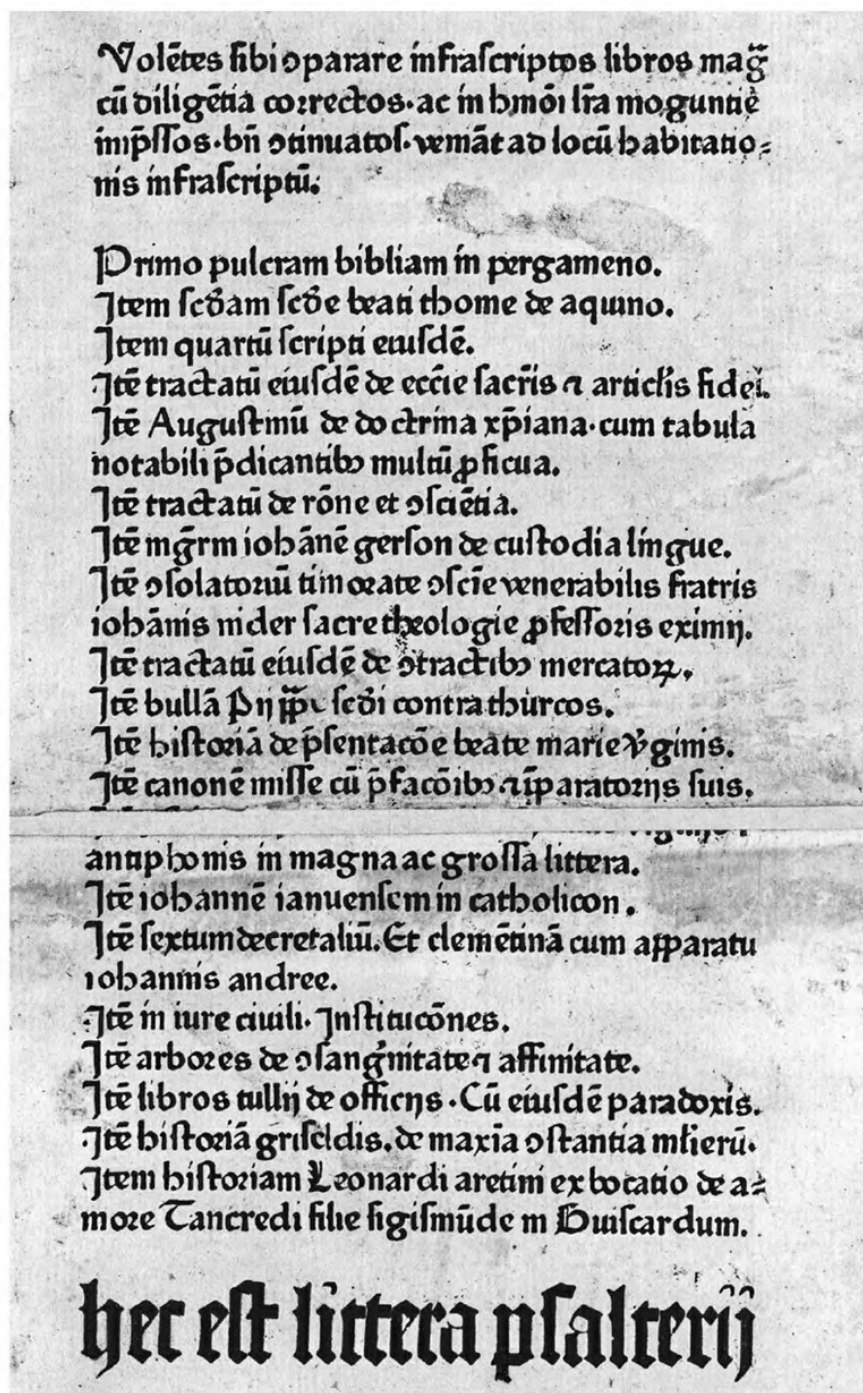 Volētes sibi ꝯparare infrascriptos libros mag̃
cū diligētia correctos·ac in hmōi lr̄a moguntie
imp̄ssos·bn̄ ꝯtinuatos·veniāt ad locū habitatio⸗
nis infrascriptū.
Primo pulcram bibliam in pergameno.
Item scd̄am scd̄e beati thome de aquino.
Item quartū scripti eiusdē.
Itē tractatū eiusdē de ecc̄ie sacr̄is ⁊ articl̄is fidei.
Itē Augustinū de doctrina xp̄iana·cum tabula
notabili p̄dicantibꝫ multū ꝓficua.
Itē tractatū de rōne et ꝯsciētia.
Itē mgr̄m iohānē gerson de custodia lingue.
Itē ꝯsolatoriū timorate ꝯscīe venerabilis fratris
iohānis nider sacre theologie ꝓfessoris eximij.
Itē tractatū eiusdē de ꝯtractibꝫ mercatoꝝ.
Itē bullā Pij pp̄e scd̄i contra thurcos.
Itē historiā de p̄sentacōe beate marie v̄ginis.
Itē canonē misse cū p̄facōibꝫ ⁊ īparatorijs suis.
antiphonis in magna ac grossa littera.
Itē iohannē ianuensem in catholicon.
Itē sextum decretaliū. Et clemētinā cum apparatu
iohannis andree.
Itē in iure ciuili. Institucōnes.
Itē arbores de ꝯsangnītate ⁊ affinitate.
Itē libros tullij de officijs. Cū eiusdē paradoxis.
Itē historiā griseldis. de maxīa ꝯstantia mlierū.
Item historiam Leonardi aretini ex bocatio de a⸗
more Tancredi filie sigismūde in Guiscardum.
hec est littera psalterij